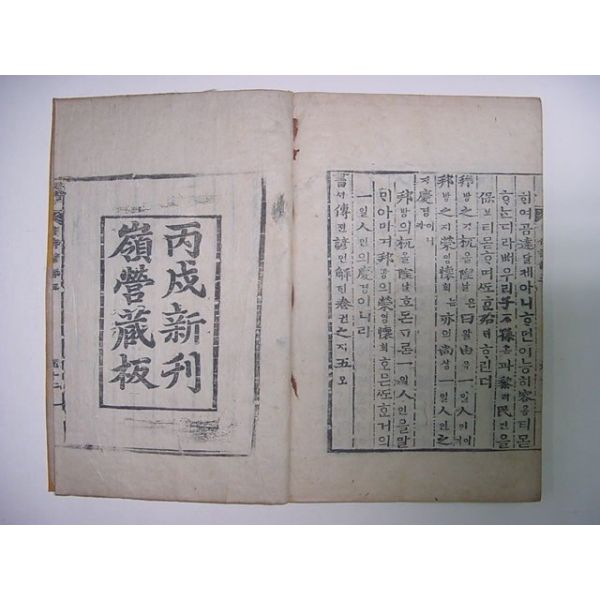 ᄒᆞ여곰達달케아니ᄒᆞ면이능히容용티몯
ᄒᆞᄂᆞᆫ디라ᄡᅥ우리子ᄌᆞ孫손과黎려民민을
保보티몯ᄒᆞ며ᄯᅩᄒᆞᆫ殆ᄐᆡᄒᆞ린뎌
邦방之지杌올隉녈은曰왈由유一일人인이며
邦방之지榮영懷회ᄂᆞᆫ亦역尙샹一일人인之
지慶경이니라
邦방의杌올隉녈호ᄆᆞᆫᄀᆞᆯ온一일人인을말
ᄆᆡ아마며邦방의榮영懷회홈은ᄯᅩᄒᆞᆫ거의
一일人인의慶경이니라
書셔傳뎐諺언解ᄒᆡ卷권之지五오
丙戌新刊
嶺營藏板